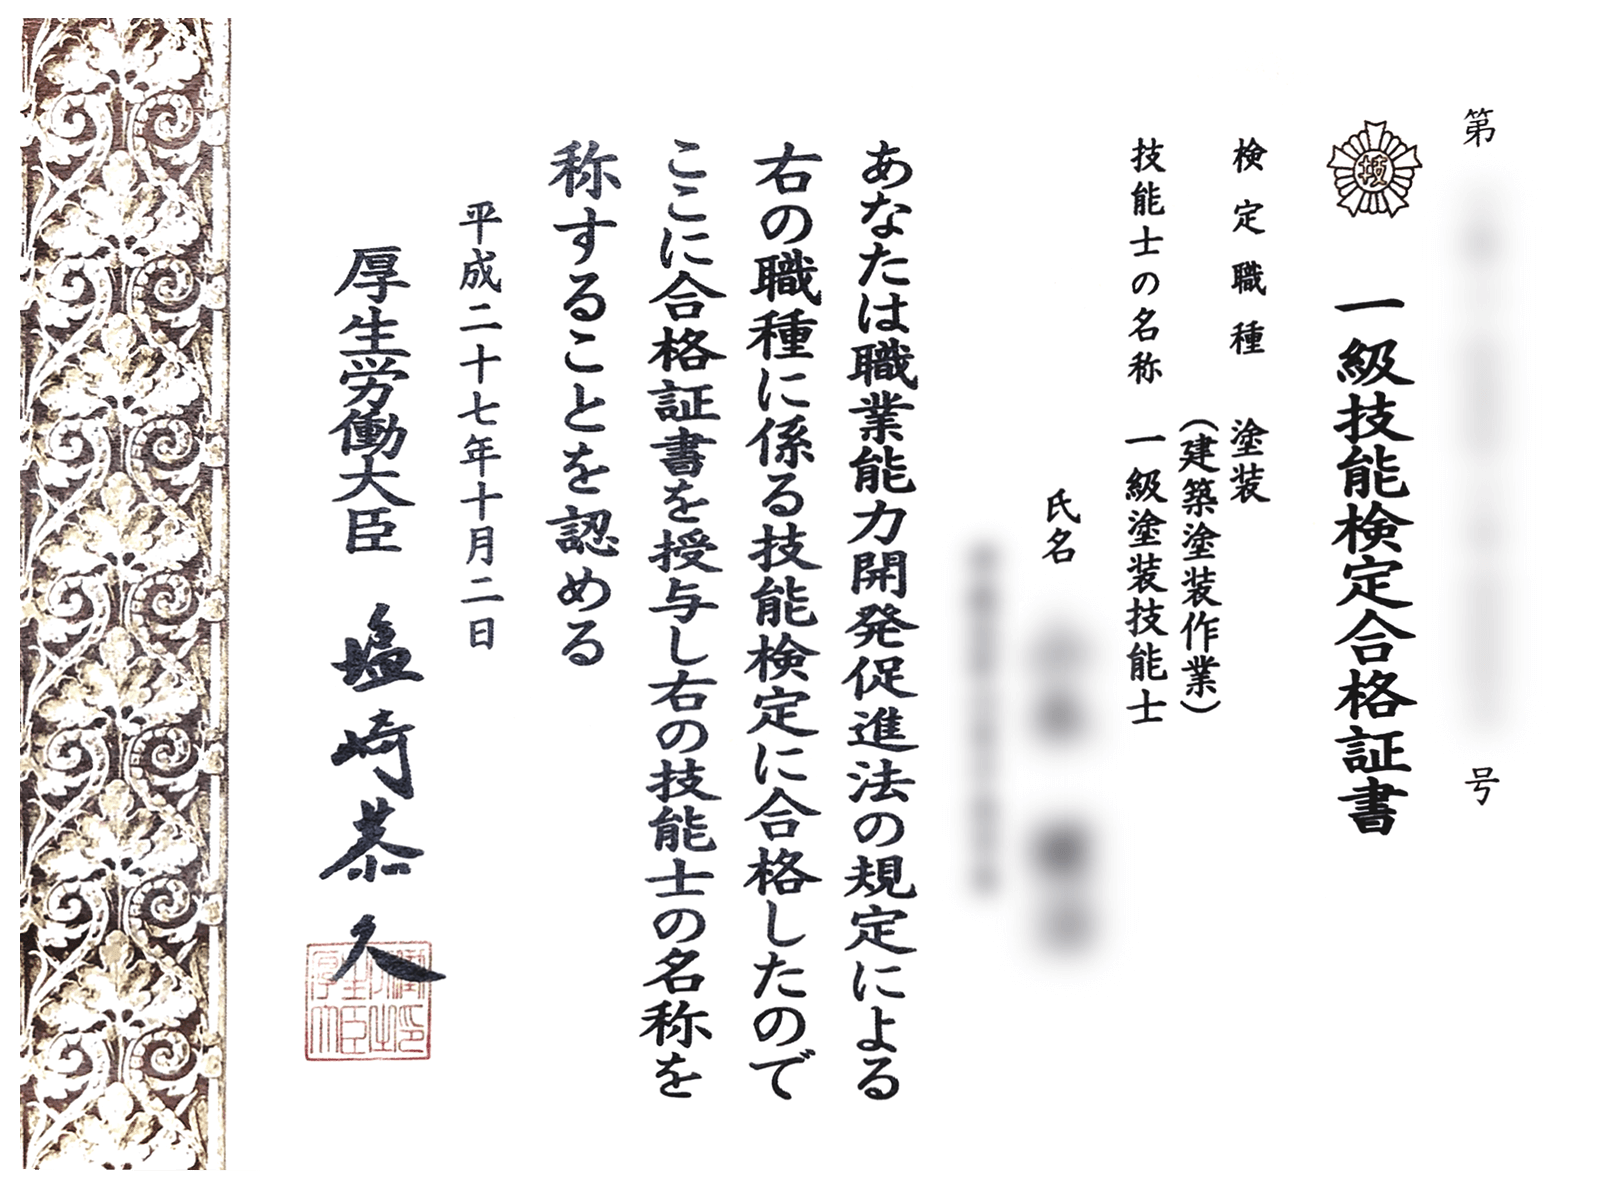 第 号
技
一級技能検定合格証書
検定職種 塗装
(建築塗装作業)
技能士の名称 一級塗装技能士
氏名
あなたは職業能力開発促進法の規定による
右の職種に係る技能検定に合格したので
ここに合格証書を授与し右の技能士の名称を
称することを認める
平成二十七年十月二日
厚生労働大臣 塩崎恭久